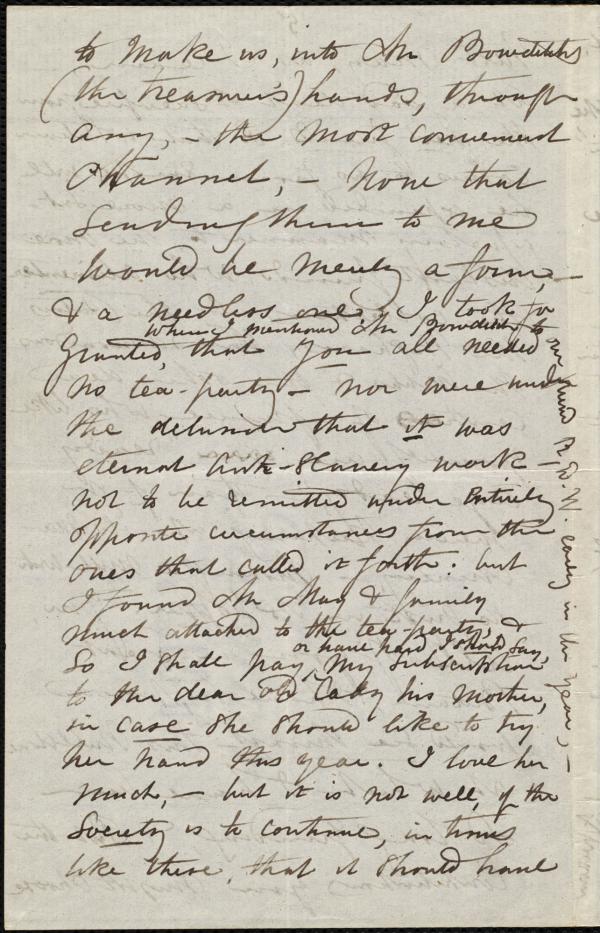 to make us, into Mr Bowditch's
(the treasurer's) hands, through
any, - the most convenient
Channel, - None that
sending them to me
would be merely a form, -
& a needless one. I took for
when I mentioned Mr Bowditch to
Granted, that You all needed
no tea-party - nor were under
the delusion that it was
eternal Anti-Slavery work -
not to be remitted under entirely
opposite circumstances from the
ones that called it forth: but
I found Mr May & family
much attached to the tea-party, &
or have paid, I should say,
So I shall pay my subscription
to the dear old Lady his mother,
in case she should like to try
her hand this year. I love her
much, - but it is not well, if the
Society is to continue, in times
like these, that it should have
our friend R. D. W. early in the year, -